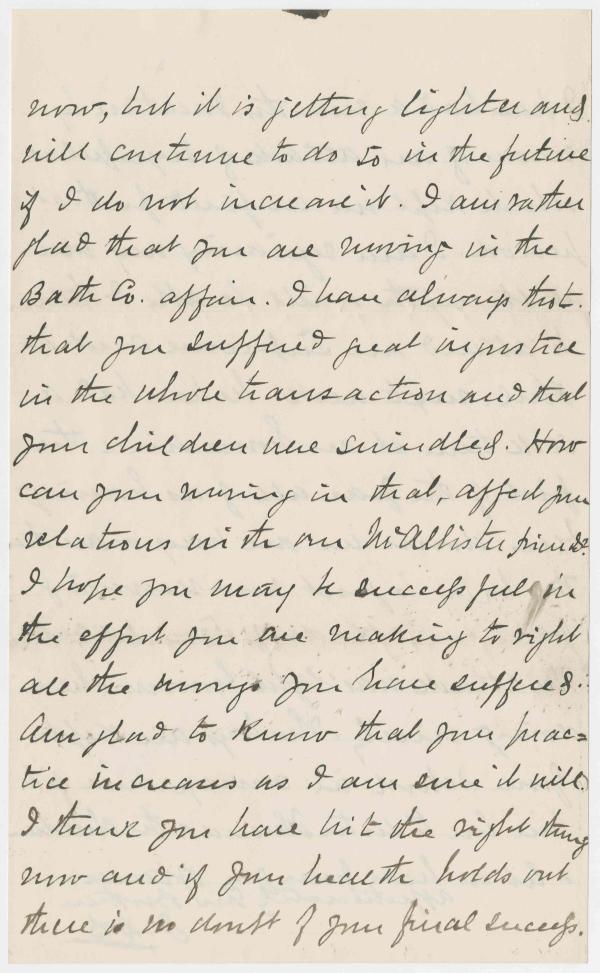 now, but it is getting lighter and
will continue to do so in the future
if I do not increase it. I am rather
glad that you are moving in the
Bath Co. affair. I have always thot.
that you suffered great injustice
in the whole transaction and that
your children were swindled. How
can your moving in that, affect your
relations with our McAllister friends.
I hope you may be successful in
the effort you are making to right
all the wrongs you have suffered.
Am glad to know that your prac=
tice increases as I am sure it will.
I think you have hit the right thing
now and if your health holds out
there is no doubt of your final success.